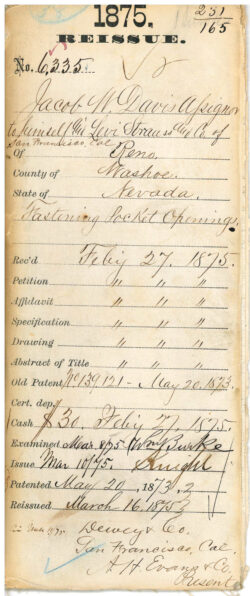 1875.
231
165
REISSUE.
No. 6,335
Jacob W Davis Assignor
to himself and Levi Strauss & Co of
San Francisco, Cal
Of Reno.
County of Washoe.
State of Nevada.
Fastening Pocket Openings
Rec'd Feby 27. 1875.
Petition " " "
Affidavit " " "
Specification " " "
Drawing " " "
Abstract of Title " " "
Old Patent No 139,121 - May 20, 1873.
Cert. dep.
Cash $30. Feby 27. 1875.
Examined Mar 8/75 Wm Burke
Issue Mar 10/75. Knight
Patented May 20, 1873. 2
Reissued March 16. 1875
Dewey & Co.
San Francisco, Cal.
A. H. Evans & Co.
Present